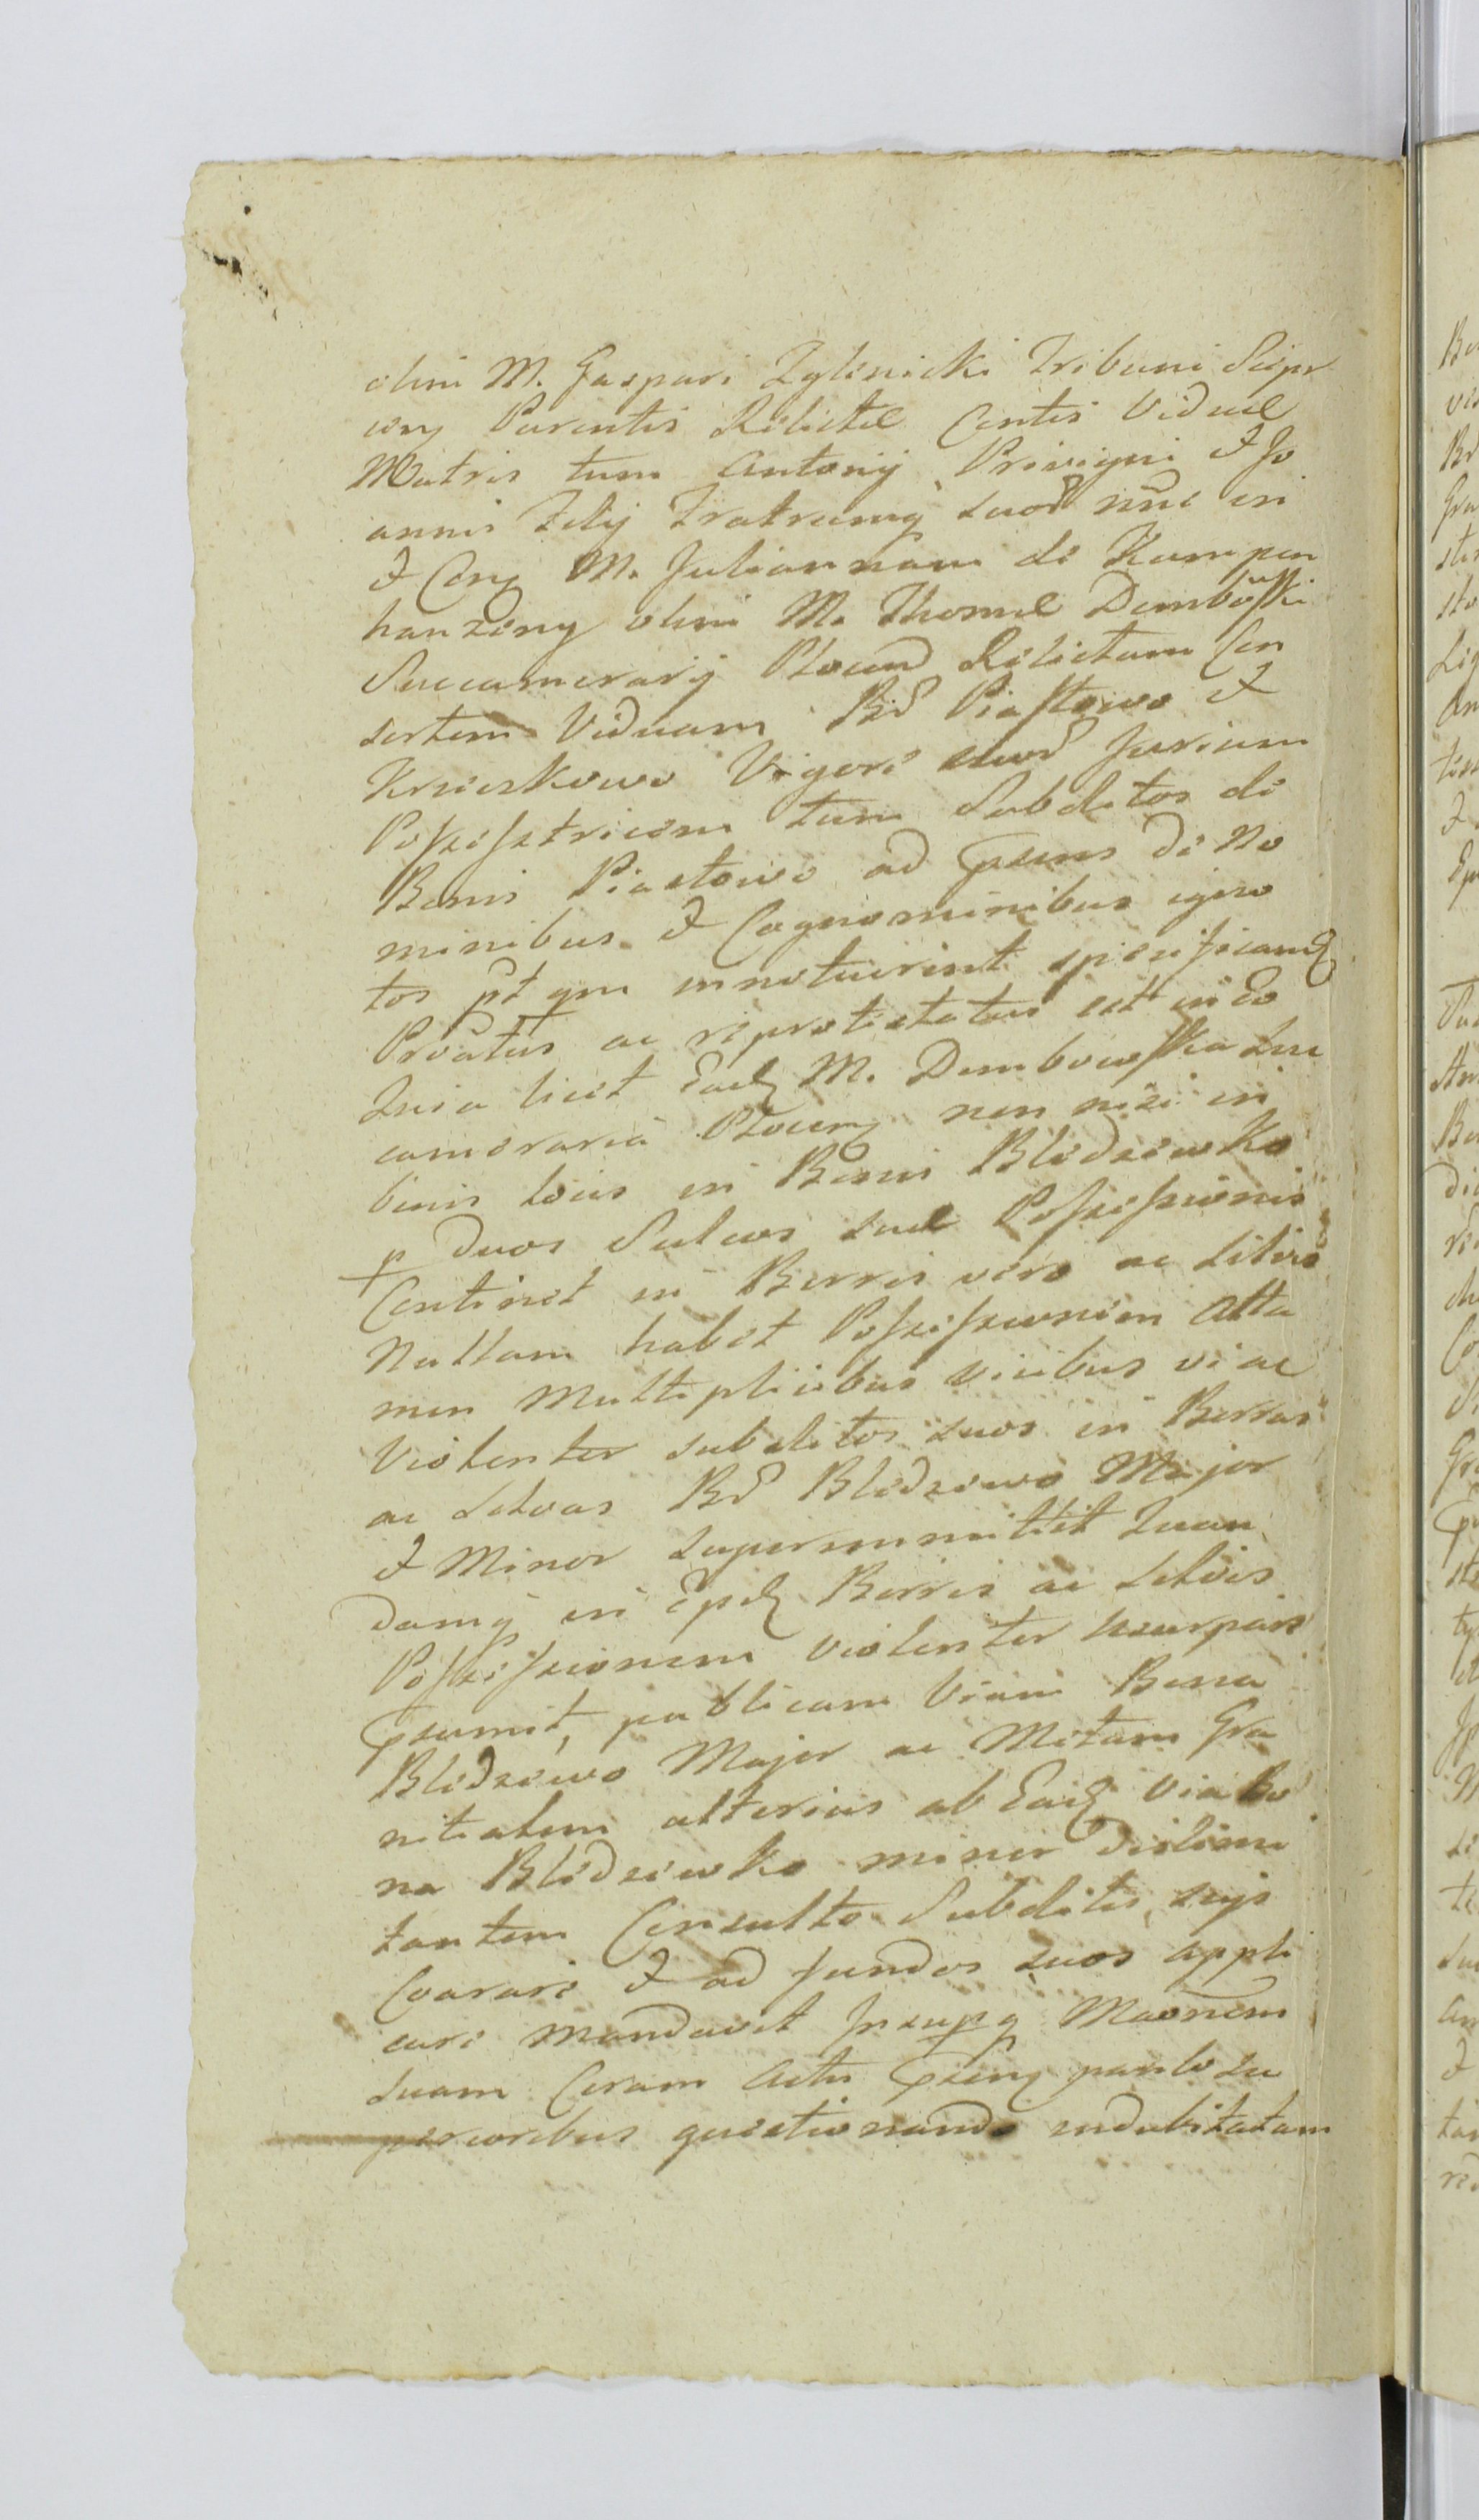 olim M. Gaspari Zglinicki Tribuni Sierpe
cens Parentis Relictæ Contis Viduæ
Matris tum Antonij Privigni & Jo
annis Filij Fratrumq suor nnc in
& Cong M. Juliannam de Kampen
hauzeny olim M. Thomæ Dembowski
Succamerarij Plocens Relictam Con
sortem Viduam Bd Piastowo &
Krzeczkowo Vigore suor Jurium
Possessatricem tum Subditos de
Bonis Piastowo ad pssens de No
minibus & Cognominibus igno
tos pt qm innotuerint specificand
Provatus ac reprotestatus est in Eo
Quia licet Eadq M. Dembowska Suc
cameraria Plocens non nisi in
binis locis in Bonis Bledzewko
p duos Sulcos suæ Possessionis
Continet in Borris vero ac Silvis
Nullam habet Possessionem Atta
men Multiplicibus vicibus vi ac
Violenter subditos suos in Borras
ac Silvas Bd Bledzewo Major
& Minor superimmittit Quan
damq in Epdq Borris ac Silvis
Possessionem violenter usurpare
psumit, publicam Viam Bona
Bledzewo Major ac Metam Gra
nitialem alterius ab Eadq Via Bo
na Bledzewko minor Dislimi
tantem Consulto Subditis suis
Coarare & ad fundos suos appli
care mandavit Insupq Maonem
suam Coram Actis psseng paulo su
perioribus quæstionando indubitatam